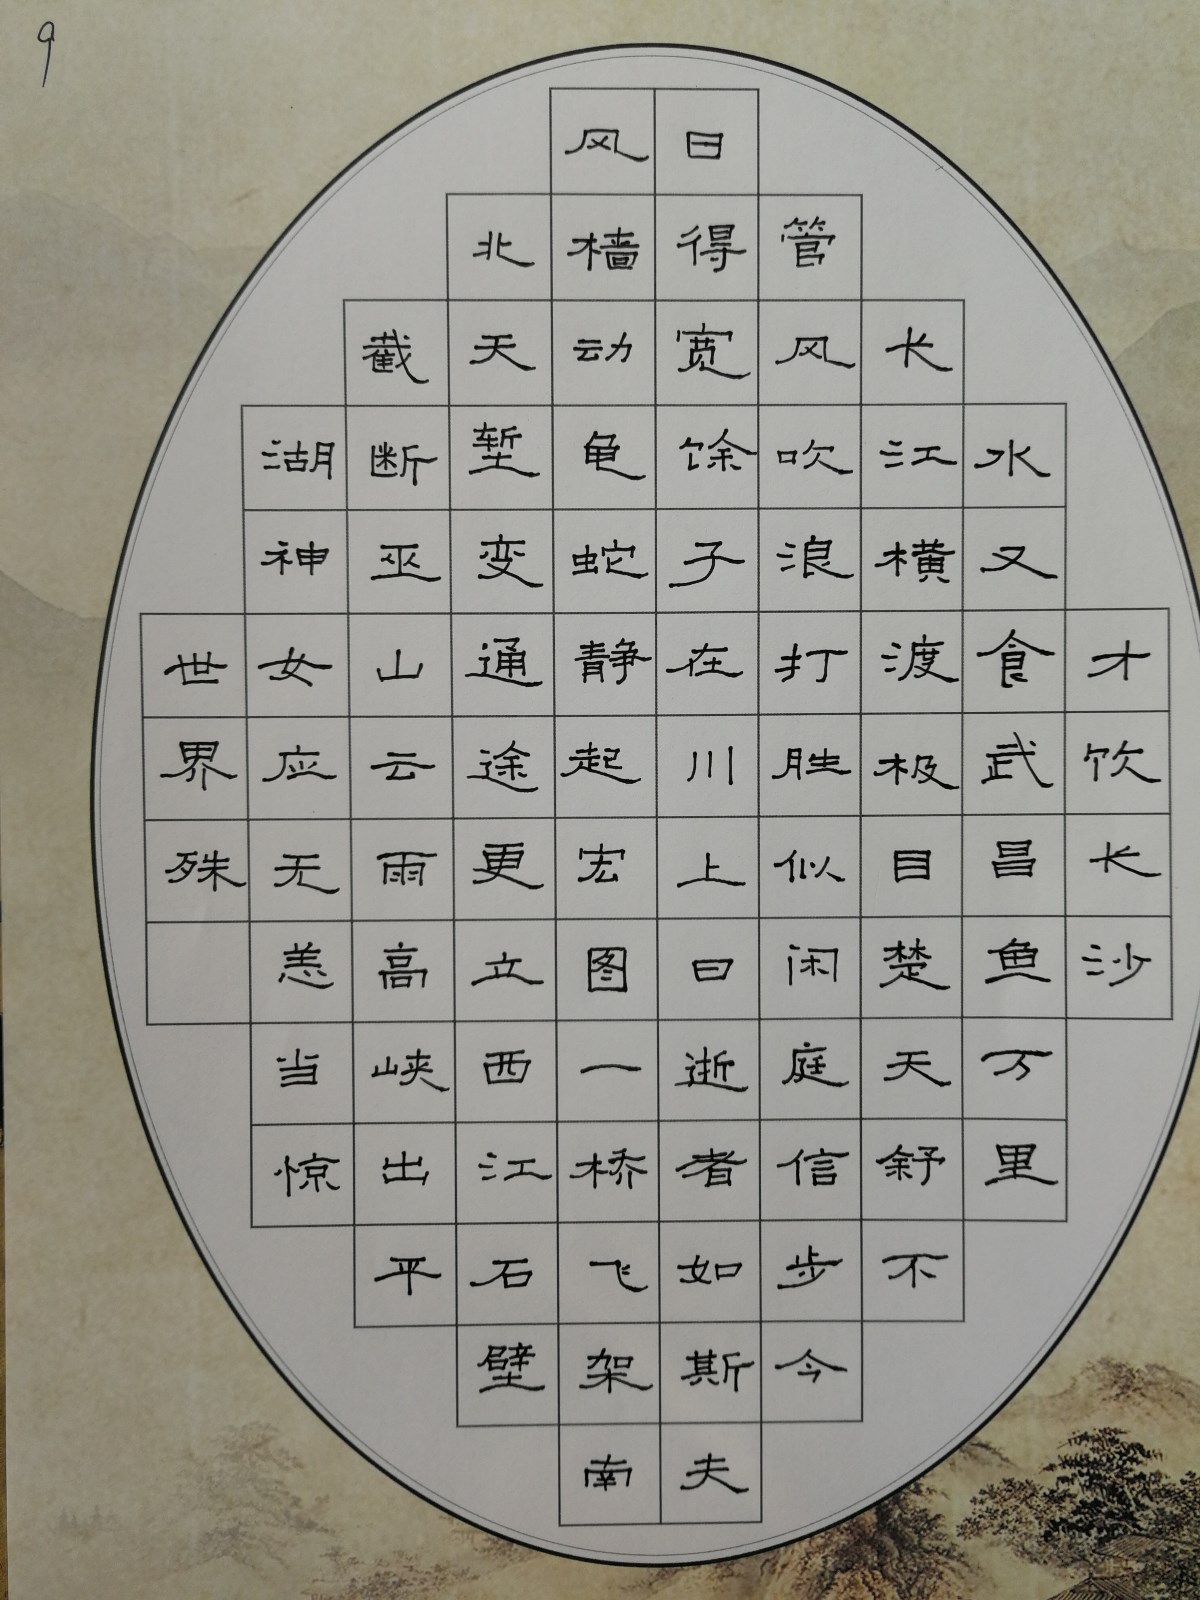 9
才饮长沙
水又食武昌鱼万里
长江横渡极目楚天舒不
管风吹浪打胜似闲庭信步今
日得宽馀子在川上曰逝者如斯夫
风樯动龟蛇静起宏图一桥飞架南
北天堑变通途更立西江石壁
截断巫山云雨高峡出平
湖神女应无恙当惊
世界殊